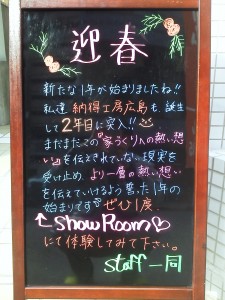 迎春
新たな1年が始まりましたね!!
私達 納得工房広島も、誕生
して2年目に突入!!
まだまだこの『家づくりへの熱い想
い』を伝えきれていない現実を
受け止め、より一層の熱い想い
を伝えていけるよう
1年の
始まりです ぜひ1度、
Show Room
にて体験してみて下さい。
staff 一同